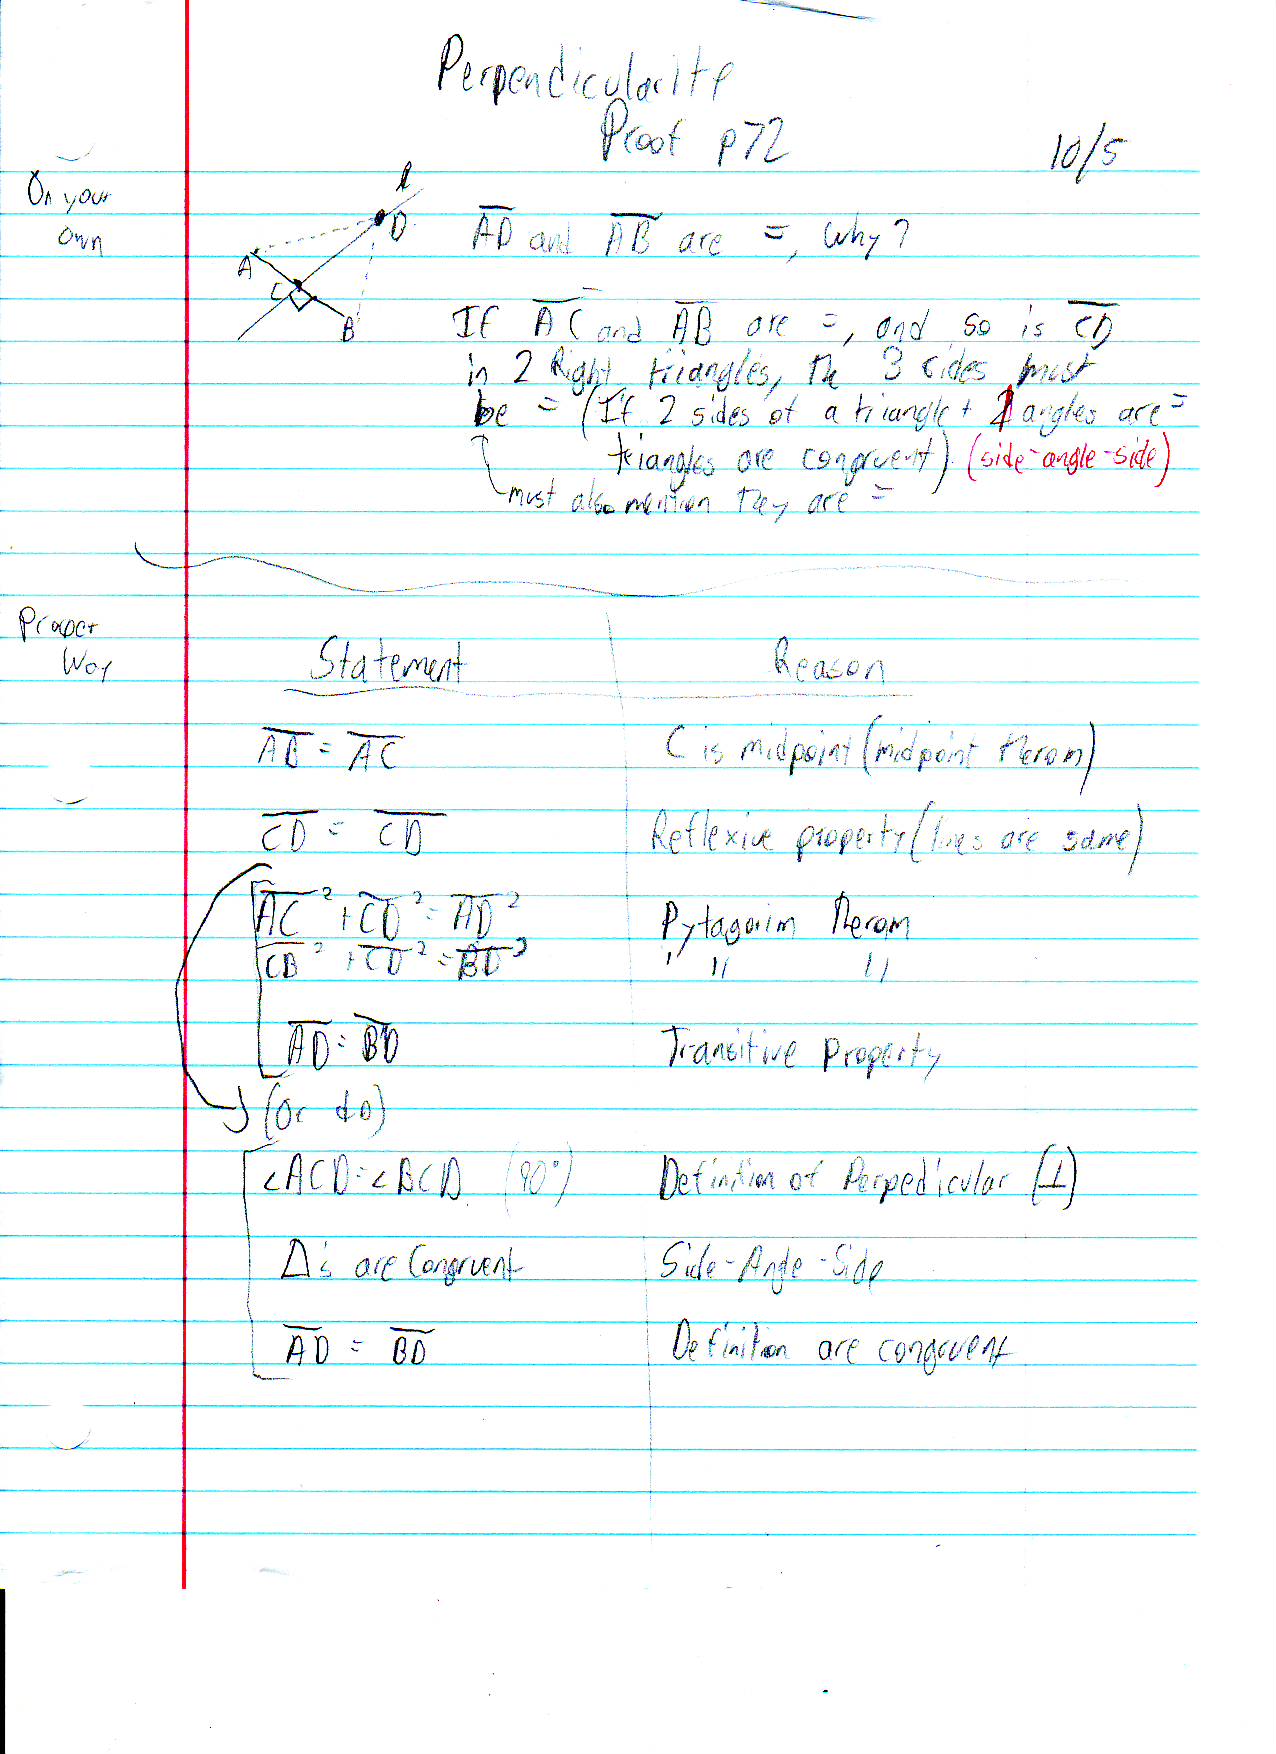 Perpendicularity
Proof p72
10/5
On your
own
l
D
A
C
B
AD and AB are =, Why?
If AC and AB are =, and so is CD
in 2 Right triangles, the 3 sides must
be = (If 2 sides of a triangle + 1 angles are =
triangles are congruent) (side-angle-side)
must also mention they are =
Proper
Way
Statement Reason
AB = AC C is midpoint (midpoint therom)
CD = CD Reflexive property (lines are same)
AC² + CD² = AD² Pytagorim therom
CB² + CD² = BD² " " "
AD = BD Transitive Property
(Or do)
∠ACD = ∠BCD (90°) Definition of Perpedicular (⊥)
Δ's are Congruent Side-Angle-Side
AD = BD Definition are congruent